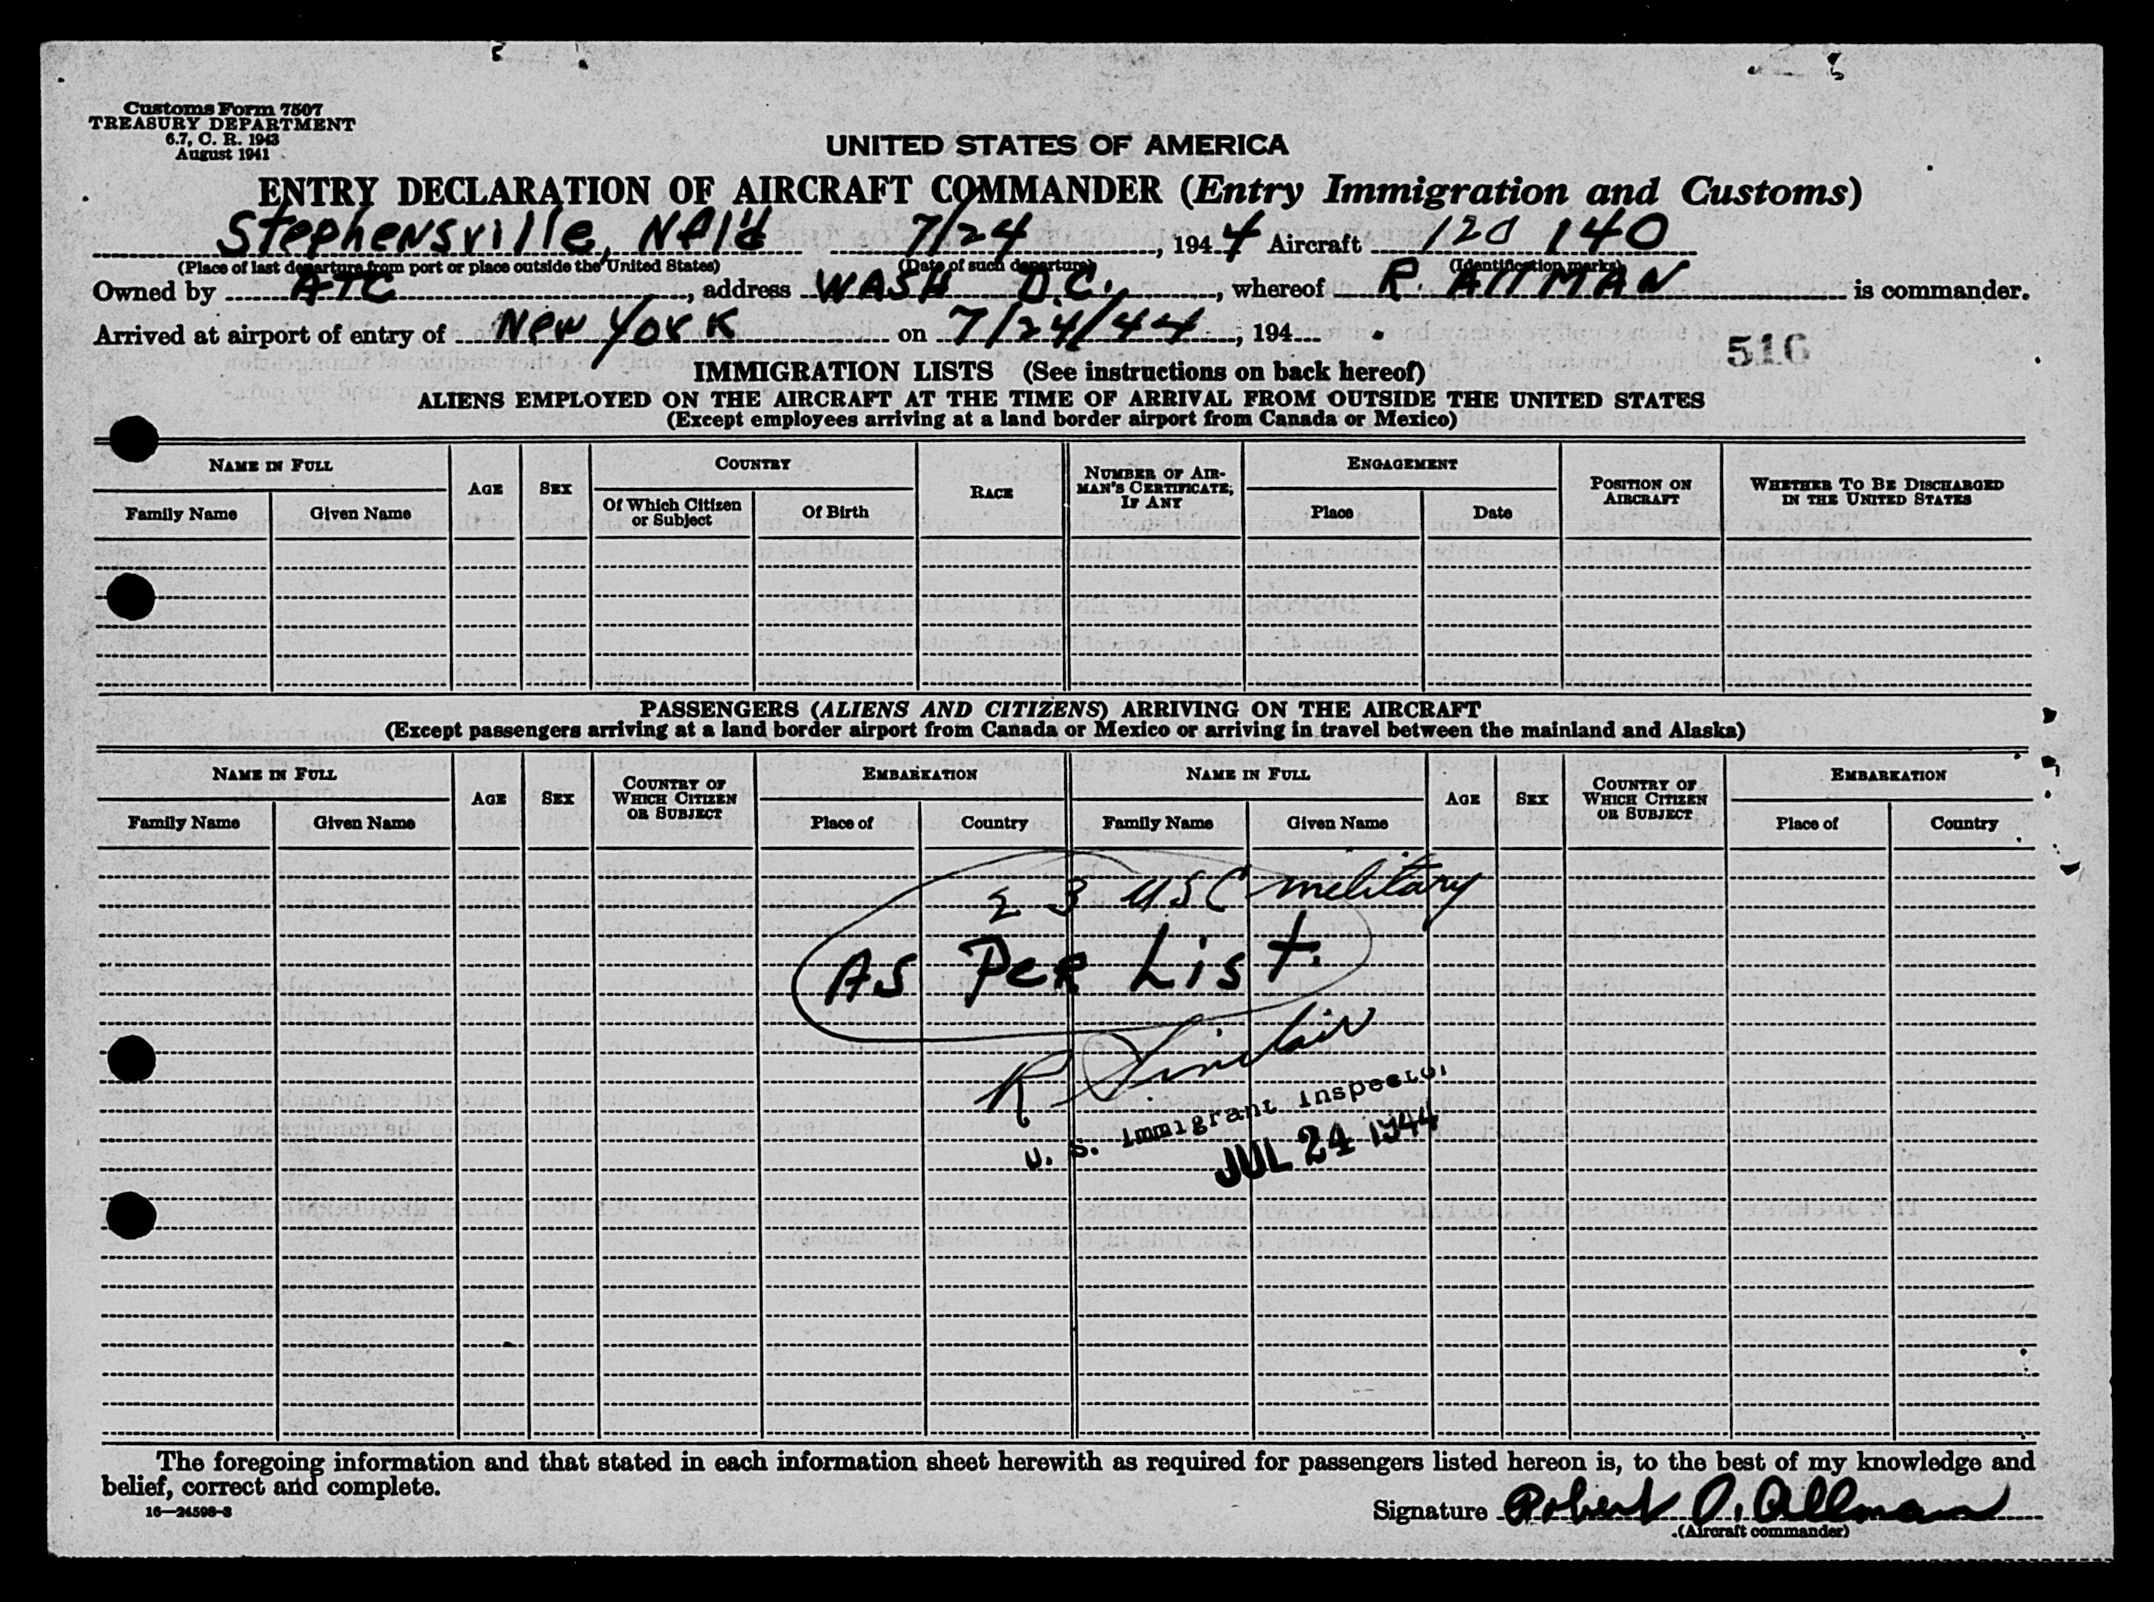 Customs Form 7507
TREASURY DEPARTMENT
6.7, C. R. 1943
August 1941
UNITED STATES OF AMERICA
ENTRY DECLARATION OF AIRCRAFT COMMANDER (Entry Immigration and Customs)
Stephensville, Nfld 7/24, 1944 Aircraft 120 140
(Place of last departure from port or place outside the United States) (Date of such departure) (Identification marks)
Owned by ATC, address WASH D.C., whereof R. AllMAN is commander.
Arrived at airport of entry of New York on 7/24/44, 194
516
IMMIGRATION LISTS (See instructions on back hereof)
ALIENS EMPLOYED ON THE AIRCRAFT AT THE TIME OF ARRIVAL FROM OUTSIDE THE UNITED STATES
(Except employees arriving at a land border airport from Canada or Mexico)
NAME IN FULL AGE SEX COUNTRY RACE NUMBER OF AIRMAN'S CERTIFICATE, IF ANY ENGAGEMENT POSITION ON AIRCRAFT WHETHER TO BE DISCHARGED IN THE UNITED STATES
Family Name Given Name Of Which Citizen or Subject Of Birth Place Date
PASSENGERS (ALIENS AND CITIZENS) ARRIVING ON THE AIRCRAFT
(Except passengers arriving at a land border airport from Canada or Mexico or arriving in travel between the mainland and Alaska)
NAME IN FULL AGE SEX COUNTRY OF WHICH CITIZEN OR SUBJECT EMBARKATION NAME IN FULL AGE SEX COUNTRY OF WHICH CITIZEN OR SUBJECT EMBARKATION
Family Name Given Name Place of Country Family Name Given Name Place of Country
23 USC military
As Per List.
R Sinclair
U. S. Immigrant Inspector
JUL 24 1944
The foregoing information and that stated in each information sheet herewith as required for passengers listed hereon is, to the best of my knowledge and
belief, correct and complete.
16—24598-3
Signature Robert O. Allman
(Aircraft commander)